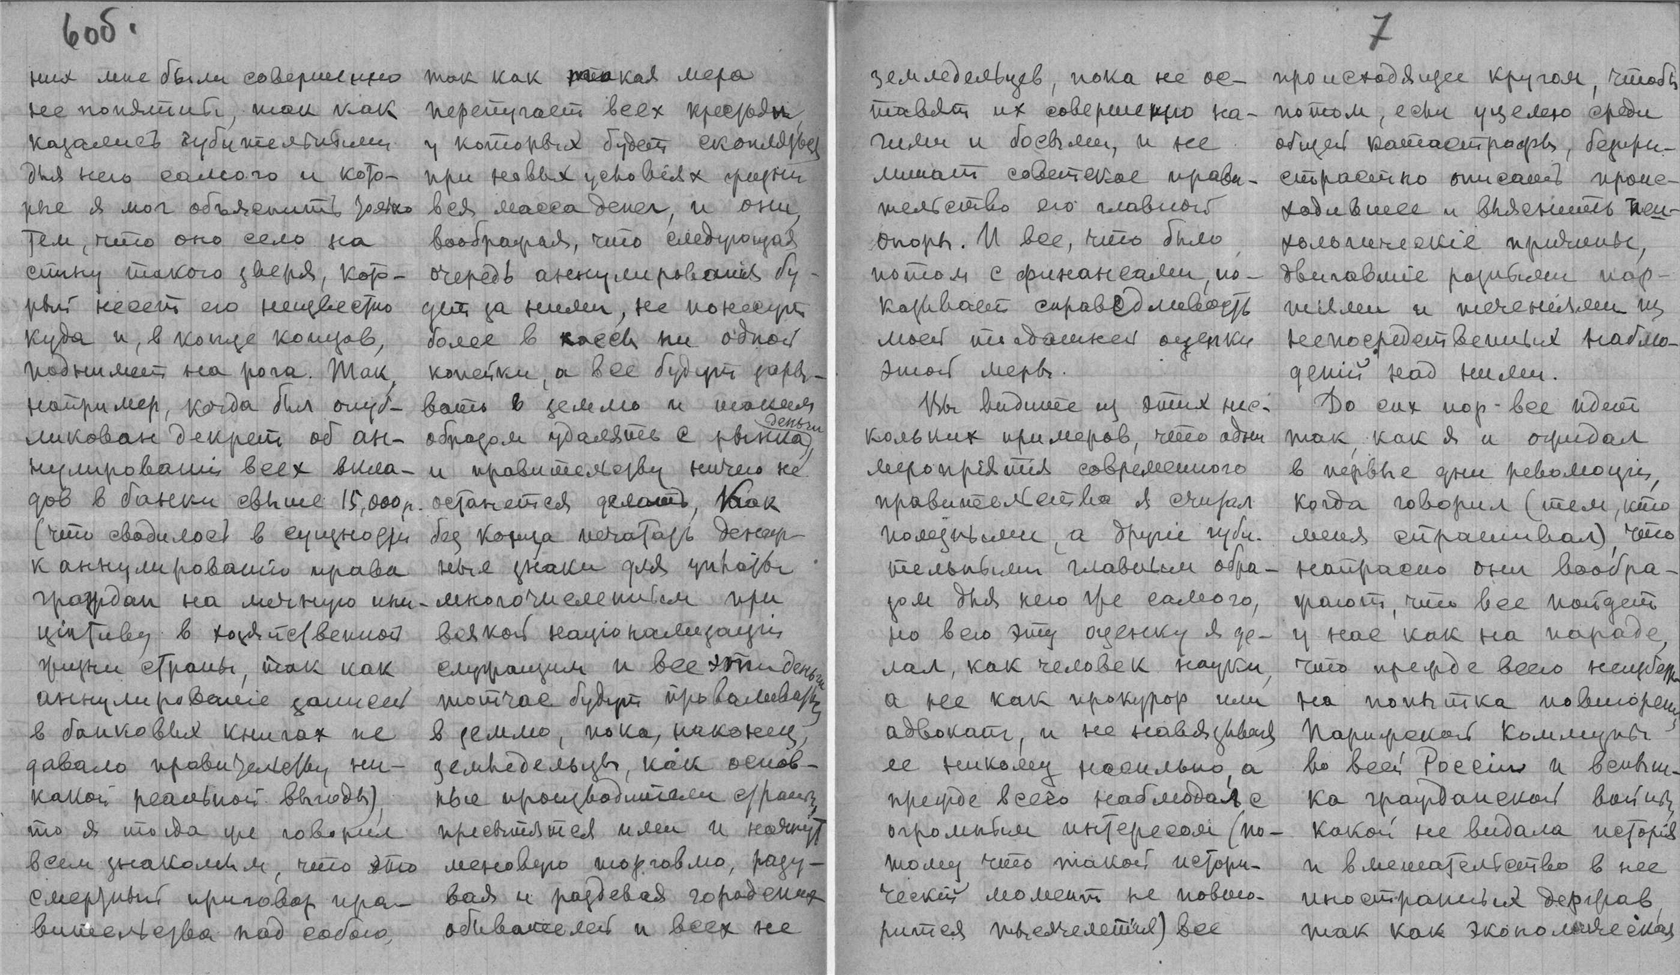 6об.
них мне были совершенно
не понятны, так как
казались губительными
для него самого и кото-
рые я мог объяснить только
тем, что оно село на
спину такого зверя, кото-
рый несет его неизвестно
куда и, в конце концов,
поднимет на рога. Так,
например, когда был опуб-
ликован декрет об ан-
нулированіи всех вкла-
дов в банки свыше 15,000р.
(что сводилось в сущности
к аннулированію права
граждан на личную ини-
ціативу в хозяйственной
жизни страны, так как
аннулированіе записей
в банковых книгах не
давало правительству ни-
какой реальной выгоды),
то я тогда же говорил
всем знакомым, что это
смертный приговор пра-
вительства над собою,
так как такая мера
перепугает всех крестьян
у которых будет скопляться
при новых условіях жизни
вся масса денег, и они,
воображая, что следующая
очередь аннулированія бу-
дет за ними, не понесут
более в кассы ни одной
копейки, а все будут зары-
вать в землю и таким
образом удалять с рынка деньги,
и правительству ничего не
останется делать, как
без конца печатать денеж-
ные знаки для уплаты
многочисленным при
всякой націонализаціи
служащим и все эти деньги
тотчас будут проваливаться
в землю, пока, наконец,
земледельцы, как основ-
ные производители страны,
пресытятся ими и начнут
меновую торговлю, разу-
вая и раздевая городских
обывателей и всех не
7
земледельцев, пока не ос-
тавят их совершенно на-
гими и босыми, и не
лишат советское прави-
тельство его главной
опоры. И все, что было
потом с финансами, по-
казывает справедливость
моей тогдашней оценки
этой меры.
Вы видите из этих нес-
кольких примеров, что одни
мероприятія современного
правительства я считал
полезными, а другіе губи-
тельными главным обра-
зом для него же самого,
но всю эту оценку я де-
лал, как человек науки,
а не как прокурор или
адвокат, и не навязывая
ее никому насильно, а
прежде всего наблюдая с
огромным интересом (по-
тому что такой истори-
ческій момент не повто-
рится тысячелетия) все
происходящее кругом, чтобы
потом, если уцелею среди
общей катастрофы, безпри-
страстно описать проис-
ходившее и выяснить пси-
хологическіе причины,
двигавшіе разными пар-
тіями и теченіями из
непосредственных наблю-
деній над ними.
До сих пор все идет
так, как я и ожидал
в первые дни революціи,
когда говорил (тем, кто
меня спрашивал), что
напрасно они вообра-
жают, что все пойдет
у нас как на параде,
что прежде всего неизбеж-
на попытка повторенія
Парижской Коммуны
во всей Россіи и вспыш-
ка гражданской войны,
какой не видала исторія
и вмешательство в нее
иностранных держав,
так как экономическая